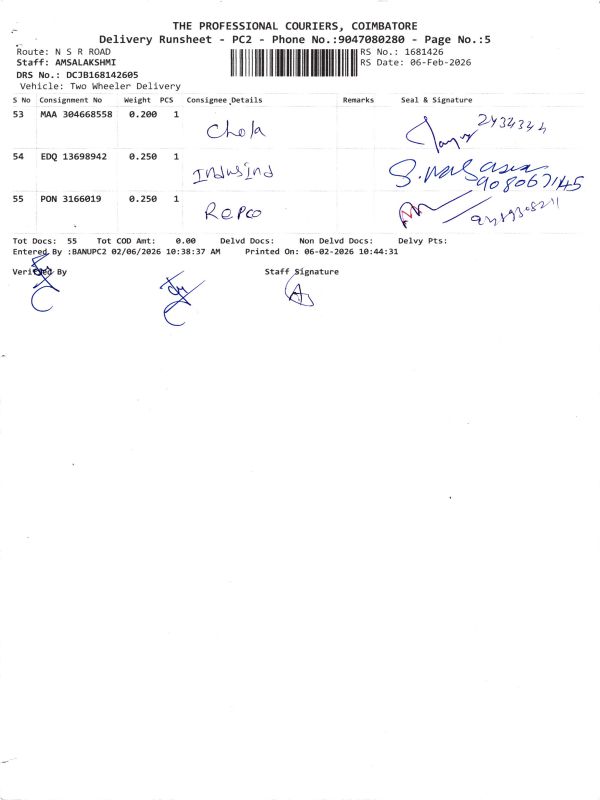 THE PROFESSIONAL COURIERS, COIMBATORE
Delivery Runsheet - PC2 - Phone No.:9047080280 - Page No.:5
Route: N S R ROAD
RS No.: 1681426
Staff: AMSALAKSHMI
RS Date: 06-Feb-2026
DRS No.: DCJB168142605
Vehicle: Two Wheeler Delivery
S No Consignment No Weight PCS Consignee Details Remarks Seal & Signature
53 MAA 304668558 0.200 1 Chola 2434344
54 EDQ 13698942 0.250 1 Indusind
55 PON 3166019 0.250 1 Repco
Tot Docs: 55 Tot COD Amt: 0.00 Delvd Docs: Non Delvd Docs: Delvy Pts:
Entered By :BANUPC2 02/06/2026 10:38:37 AM Printed On: 06-02-2026 10:44:31
Verified By Staff Signature